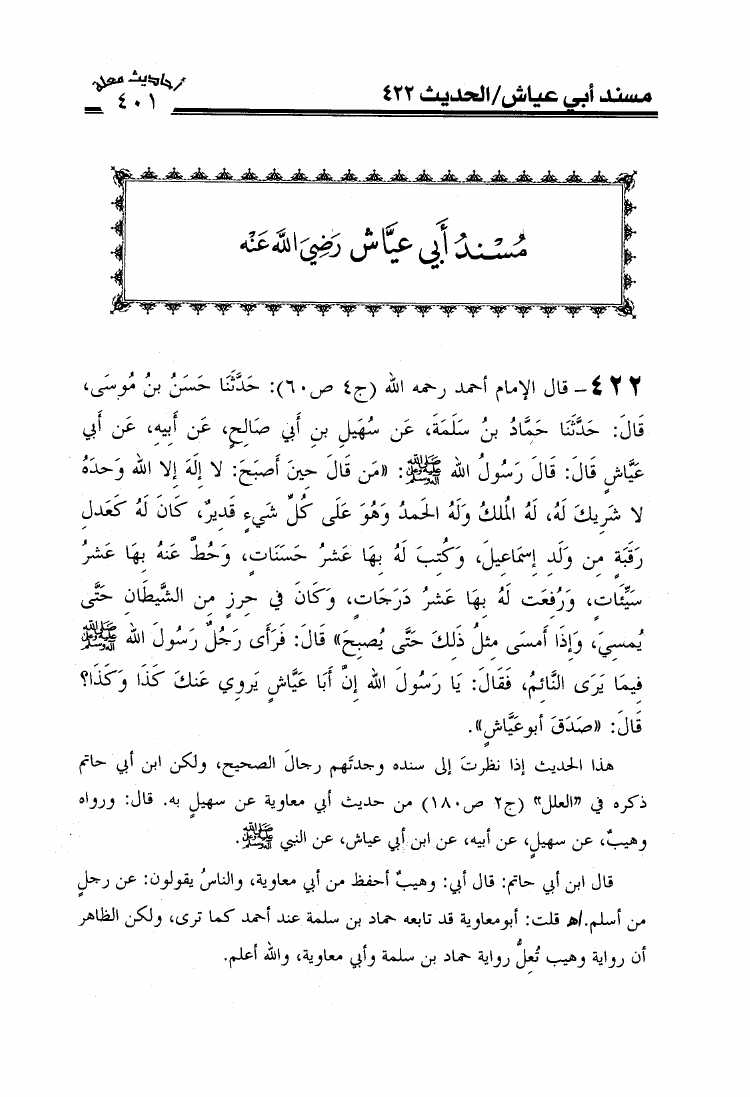 أحاديث معلة
٤٠١
مسند أبي عياش/الحديث ٤٢٢
مُسْندُ أَبي عيَّاش رَضِيَ اللَّهُ عَنْه
٤٢٢- قال الإمام أحمد رحمه الله (ج٤ ص٦٠): حَدَّثَنَا حَسَنُ بنُ مُوسَى،
قَالَ: حَدَّثَنَا حَمَّادُ بنُ سَلَمَةَ، عَن سُهَيلِ بنِ أَبي صَالِحٍ، عَن أَبِيهِ، عَن أَبي
عَيَّاشٍ قَالَ: قَالَ رَسُولُ الله ﷺ: «مَن قَالَ حِينَ أَصبَحَ: لا إِلَهَ إلا الله وَحدَهُ
لا شَرِيكَ لَهُ، لَهُ المُلكُ وَلَهُ الحَمدُ وَهُوَ عَلَى كُلِّ شَيءٍ قَدِيرٌ، كَانَ لَهُ كَعَدلِ
رَقَبَةٍ مِن وَلَدِ إِسمَاعِيلَ، وَكُتِبَ لَهُ بِهَا عَشرُ حَسَنَاتٍ، وَحُطَّ عَنهُ بِهَا عَشرُ
سَيِّئَاتٍ، وَرُفِعَت لَهُ بِهَا عَشرُ دَرَجَاتٍ، وَكَانَ في حِرزٍ مِن الشَّيطَانِ حَتَّى
يُمسِيَ، وَإِذَا أَمسَى مِثلُ ذَلِكَ حَتَّى يُصبِحَ» قَالَ: فَرَأَى رَجُلٌ رَسُولَ الله ﷺ
فِيمَا يَرَى النَّائِمُ، فَقَالَ: يَا رَسُولَ الله إِنَّ أَبَا عَيَّاشٍ يَروِي عَنكَ كَذَا وَكَذَا؟
قَالَ: «صَدَقَ أَبوعَيَّاشٍ».
هذا الحديث إذا نظرتَ إلى سنده وجدتَهم رجالَ الصحيح، ولكن ابن أبي حاتم
ذكره في «العلل» (ج٢ ص١٨٠) من حديث أبي معاوية عن سهيلٍ به. قال: ورواه
وهيبٌ، عن سهيلٍ، عن أبيه، عن ابن أبي عياش، عن النبي ﷺ.
قال ابن أبي حاتم: قال أبي: وهيبٌ أحفظ من أبي معاوية، والناسُ يقولون: عن رجلٍ
من أسلم.اهـ قلت: أبومعاوية قد تابعه حماد بن سلمة عند أحمد كما ترى، ولكن الظاهر
أن رواية وهيب تُعِلُّ رواية حماد بن سلمة وأبي معاوية، والله أعلم.